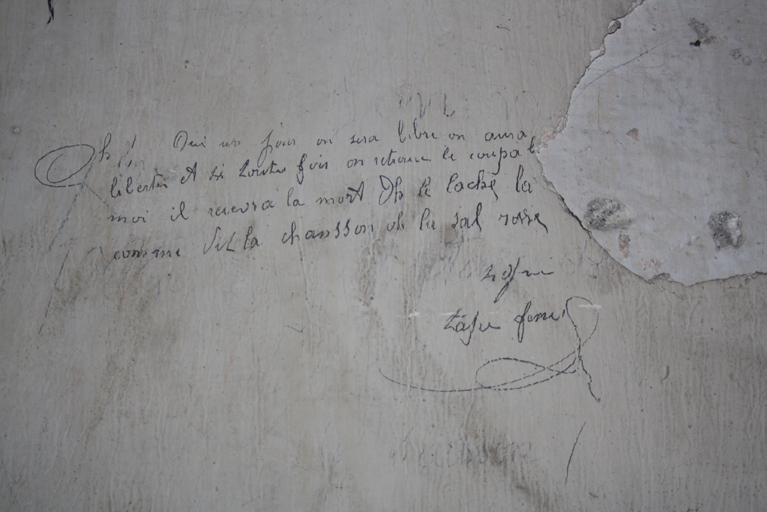 Oh ! Oui un jour on sera libre on aura
liberter et si toutes fois on retrouve le coupab
moi il recevra la mort Oh le lache la
comme dit la chansson oh le sal rosse
signé